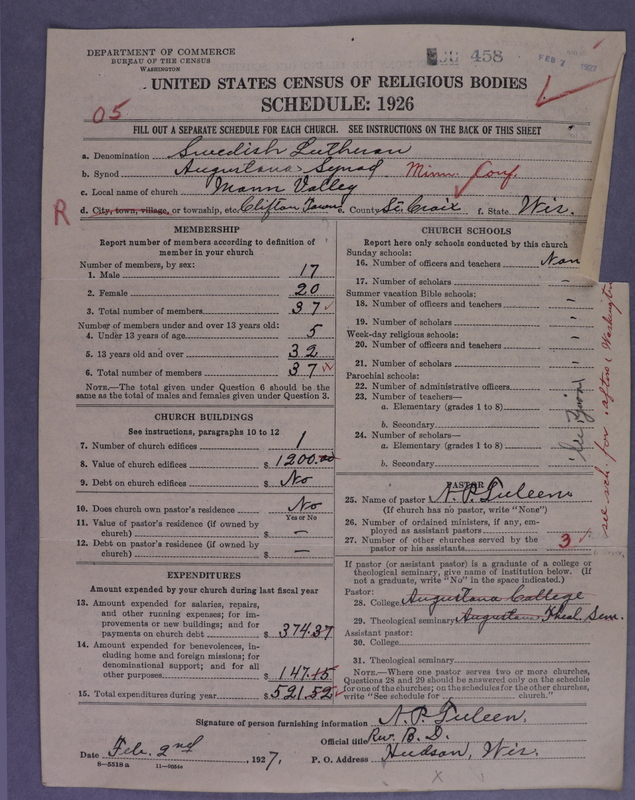 DEPARTMENT OF COMMERCE
BUREAU OF THE CENSUS
WASHINGTON
458
FEB 7 1927
UNITED STATES CENSUS OF RELIGIOUS BODIES
SCHEDULE: 1926
05
FILL OUT A SEPARATE SCHEDULE FOR EACH CHURCH. SEE INSTRUCTIONS ON THE BACK OF THIS SHEET
a. Denomination Swedish Lutheran
b. Synod Augustana Synod Minn. Conf
c. Local name of church Mann Valley
R d. City, town, village, or township, etc. Clifton Town e. County St. Croix f. State Wis.
MEMBERSHIP
Report number of members according to definition of
member in your church
Number of members, by sex:
1. Male 17
2. Female 20
3. Total number of members 37
Number of members under and over 13 years old:
4. Under 13 years of age 5
5. 13 years old and over 32
6. Total number of members 37
NOTE.—The total given under Question 6 should be the
same as the total of males and females given under Question 3.
CHURCH BUILDINGS
See instructions, paragraphs 10 to 12
7. Number of church edifices 1
8. Value of church edifices $ 1200.00
9. Debt on church edifices $ No
10. Does church own pastor's residence? No
Yes or No
11. Value of pastor's residence (if owned by
church) $ —
12. Debt on pastor's residence (if owned by
church) $ —
EXPENDITURES
Amount expended by your church during last fiscal year
13. Amount expended for salaries, repairs,
and other running expenses; for im-
provements or new buildings; and for
payments on church debt $ 374.37
14. Amount expended for benevolences, in-
cluding home and foreign missions; for
denominational support; and for all
other purposes $ 147.15
15. Total expenditures during year $ 521.52
CHURCH SCHOOLS
Report here only schools conducted by this church
Sunday schools:
16. Number of officers and teachers Non
17. Number of scholars –
Summer vacation Bible schools:
18. Number of officers and teachers –
19. Number of scholars –
Week-day religious schools:
20. Number of officers and teachers –
21. Number of scholars –
Parochial schools:
22. Number of administrative officers
23. Number of teachers—
a. Elementary (grades 1 to 8)
b. Secondary
24. Number of scholars—
a. Elementary (grades 1 to 8)
b. Secondary
see sch. for
PASTOR
25. Name of pastor N. P. Tuleen
(If church has no pastor, write "None")
26. Number of ordained ministers, if any, em-
ployed as assistant pastors
27. Number of other churches served by the
pastor or his assistants 3
If pastor (or assistant pastor) is a graduate of a college or
theological seminary, give name of institution below. (If
not a graduate, write "No" in the space indicated.)
Pastor:
28. College Augustana College
29. Theological seminary Augustana Theol. Sem.
Assistant pastor:
30. College
31. Theological seminary
NOTE.—Where one pastor serves two or more churches,
Questions 28 and 29 should be answered only on the schedule
for one of the churches; on the schedules for the other churches,
write "See schedule for church."
Signature of person furnishing information N. P. Tuleen.
Official title Rev. B. D.
Date Feb. 2nd, 1927. P. O. Address Hudson, Wis.
8—5518 a